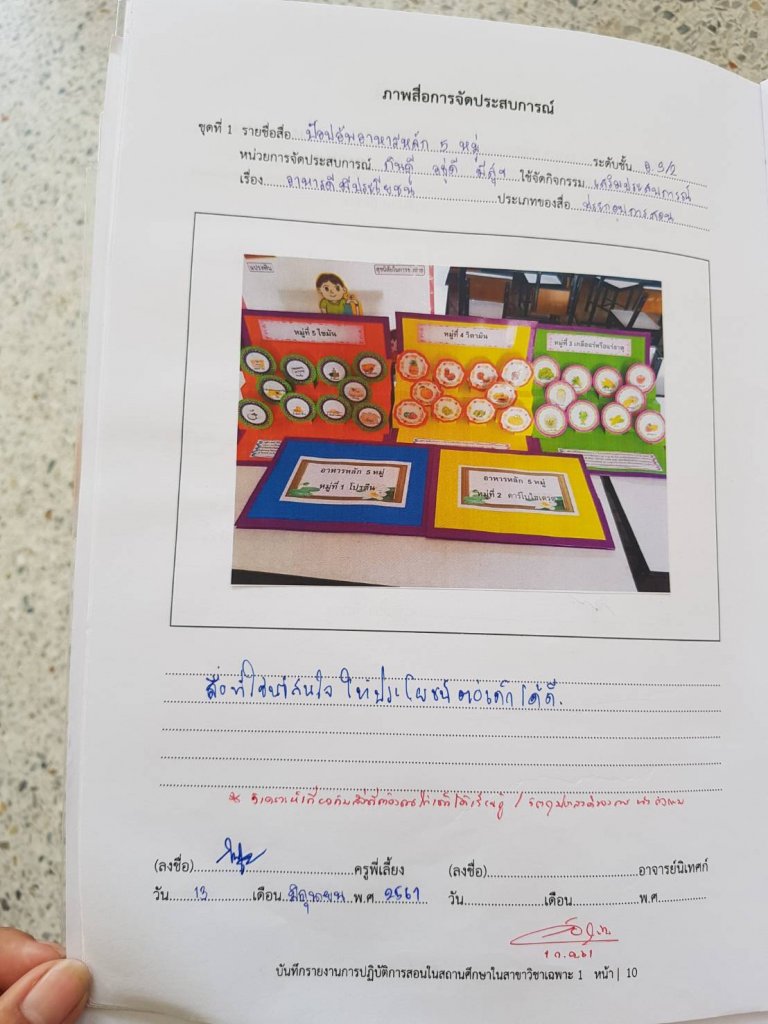 ภาพสื่อการจัดประสบการณ์
ชุดที่ 1 รายชื่อสื่อ ป๊อปอัพอาหารหลัก 5 หมู่ ระดับชั้น อ.3/2
หน่วยการจัดประสบการณ์ กินดี อยู่ดี มีสุข ใช้จัดกิจกรรม เสริมประสบการณ์
เรื่อง อาหารดีมีประโยชน์ ประเภทของสื่อ ประกอบการสอน
แปรงฟัน
หมู่ที่ 5 ไขมัน
หมู่ที่ 4 วิตามิน
หมู่ที่ 3 เกลือแร่หรือแร่ธาตุ
อาหารหลัก 5 หมู่
หมู่ที่ 1 โปรตีน
อาหารหลัก 5 หมู่
หมู่ที่ 2 คาร์โบไฮเดรต
สื่อที่ใช้น่าสนใจ ให้ประโยชน์ต่อเด็กได้ดี.
(ลงชื่อ) ครูพี่เลี้ยง (ลงชื่อ) อาจารย์นิเทศก์
วัน 13 เดือน มิถุนายน พ.ศ. 2561 วัน เดือน พ.ศ.
บันทึกรายงานการปฏิบัติการสอนในสถานศึกษาในสาขาวิชาเฉพาะ 1 หน้า | 10